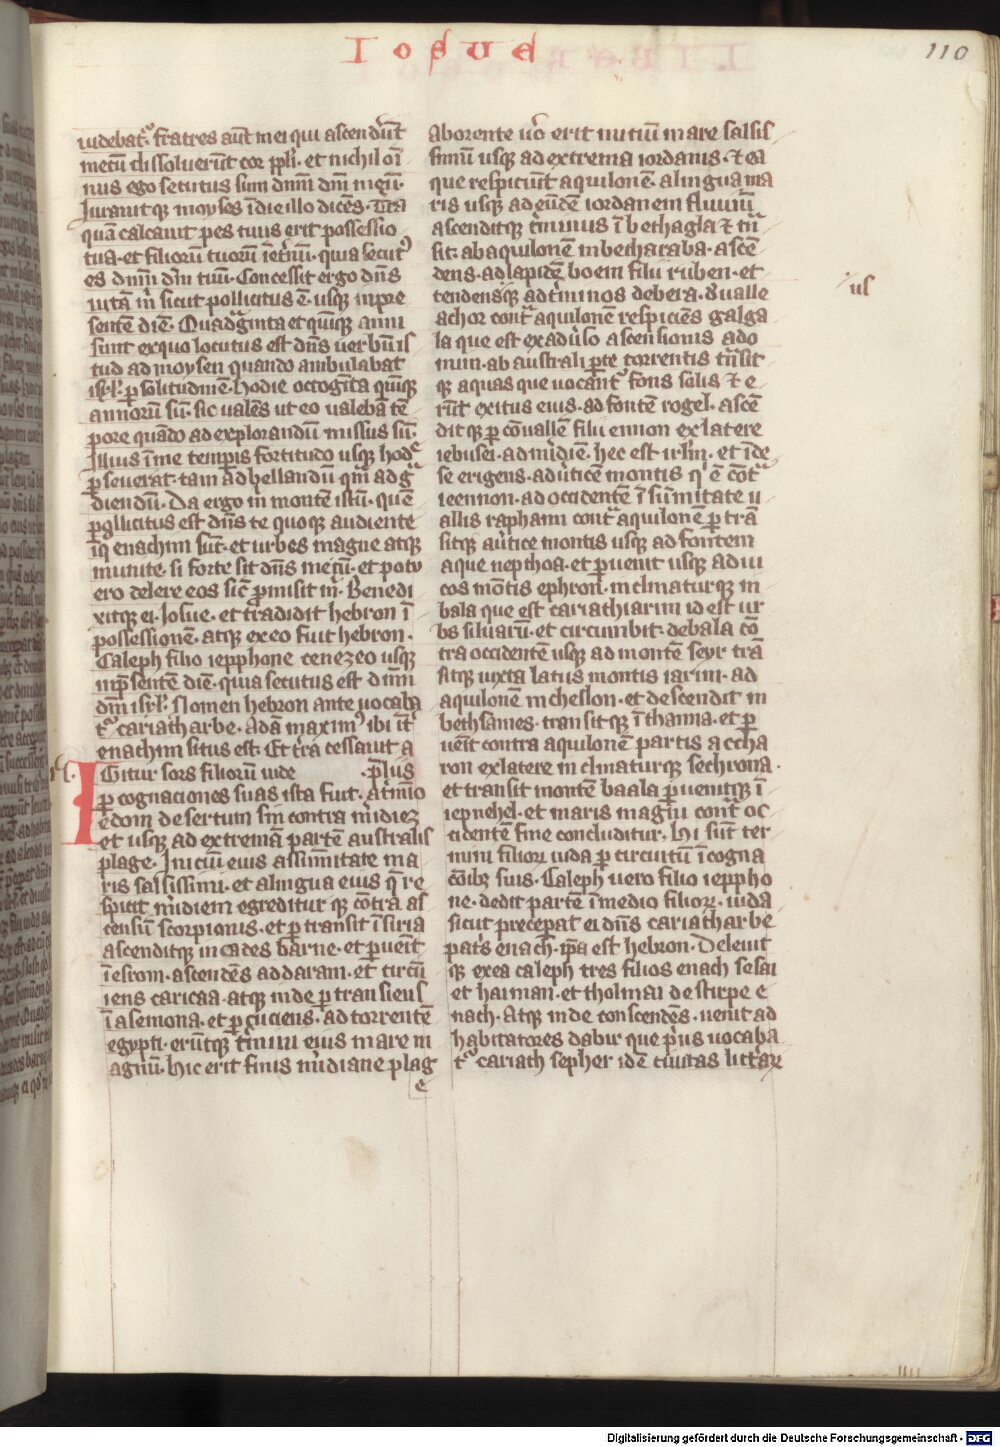 Iosue
110
uidebat᷑. fratres aūt mei qui ascendūt
mecū dissoluerūt cor ppli. et nichilomi
nus ego secutus sum dnm dm meū.
Iurauitq moyses ī die illo dicēs. Tra
quā calcauit pes tuus erit possessio
tua. et filiorū tuorū īetnū. quia secut᷒
es dnm dm tuū. Concessit ergo dns
uitā m sicut pollicitus ē. usq inpre
sentē diē. Quadginta et quīq anni
sunt exquo locutus est dns uerbū is
tud ad moysen quando ambulabat
isrl. p solitudinē. hodie octogīta quīq
annorū sū. sic ualēs ut eo ualebā tē
pore quādo ad explorandū missus sū.
Illius ī me tempis fortitudo usq hodᷓ
pseuerat. tam ad bellandū qm ad gͣ
diendū. Da ergo m montē istū. quē
pollicitus est dns te quoq audiente
īq enachim sūt. et urbes magne atq
munite. si forte sit dns mecū. et potu
ero delere eos sic pmisit m. Benedi
xitq ei Iosue. et tradidit hebron ī
possessionē. atq exeo fuit hebron.
Caleph filio iepphone cenezeo usq
inpsentē diē. quia secutus est dnm
dm isrl. Nomen hebron ante uocaba
t᷑ cariatharbe. Adā maxim᷒ ibi īt
enachim situs est. Et tra cessauit a
IGitur sors filiorū iude .plus
p cognaciones suas ista fuit. atmīo
edom desertum sin contra midiez
et usq ad extremā partē australis
plage. Iniciū eius assūmitate ma
ris salsissimi. et alingua eius q re
spicit midiem egreditur q cōtra as
censū scorpionis. et ptransit ī siria
ascenditq in cades barne. et puenit
ī esrom. ascendēs addaram. et circū
iens caricaa. atq inde ptransiens
ī asemona. et puciens. ad torrentē
egypti. erūtq tmini eius mare m
agnū. hic erit finis midiane plag
e
aborente uo erit initiū mare salsis
simū usq ad extrema iordanis. et ea
que respiciūt aquilonē. alingua ma
ris usq ad eūdē iordanem fluuiū
ascenditq tminus ī bethagla et tn
sit. abaquilonē inbetharaba. ascē
dens. adlapidē boem filii ruben. et
tendensq adtminos debera. d ualle
achor contͣ aquilonē respiciēs galga
la que est exaduso ascensionis ado
mim. ab australi pte torrentis tnsit
q aquas que uocant᷑ fons solis et e
rūt exitus eius. ad fontē rogel. ascē
dit q p cōuallē filii ennon exlatere
iebusei. ad midiē. hec est irlm. et īde
se erigens. aduticē montis q ē cōtͣ
ieennon. ad occidentē ī sūmitate u
allis raphaim contͣ aquilonē ptrā
sitq autice montis usq ad fontem
aque nepthoa. et puenit usq ad ui
cos mōtis ephron. inclinaturq in
bala que est cariathiarim id est ur
bs siluarū. et circumbit. debala cō
tra occidentē usq ad montē seyr trā
sitq iuxta latus montis iarim. ad
aquilonē incheslon. et descendit in
bethsames. transitq ī thanna. et p
uēit contra aquilonē partis accha
ron exlatere inclinaturq sechrona.
et transit montē baala puenitq ī
iepnehel. et maris magni contͣ oc
cidentē fine concluditur. hi sūt ter
mini filioꝝ iuda p circuitū ī cogna
cōibꝫ suis. Caleph uero filio ieppho
ne. dedit partē ī medio filioꝝ. iuda
sicut precepat ei dns cariatharbe
patis enach. ipa est hebron. Deleuit
q exea caleph tres filios enach sesai
et haiman. et tholmai de stirpe e
nach. Atq inde conscendēs. uenit ad
habitatores dabir que pius uocaba
t᷑ cariath sepher idē ciuitas littaꝝ
us
Digitalisierung gefördert durch die Deutsche Forschungsgemeinschaft - DFG